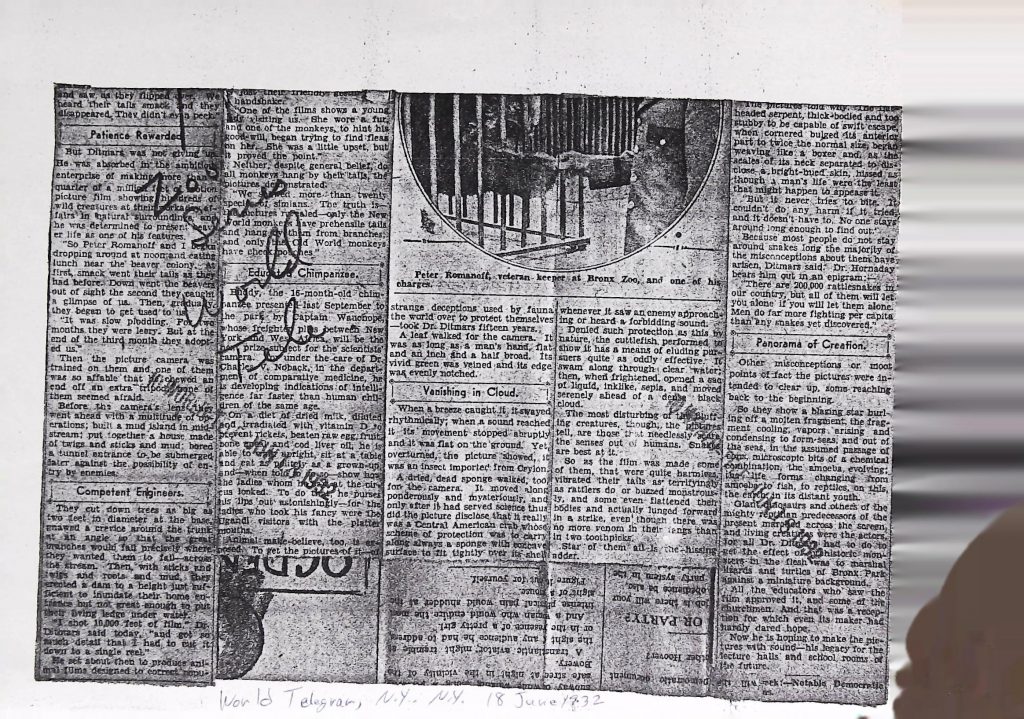 and saw as they flipped We
heard their tails smack and they
disappeared. They didn't even peek.
Patience Rewarded.
But Ditmars was not giving up.
He was absorbed in the ambitious
enterprise of making more than
quarter of a million of motion
picture film showing hundreds of
wild creatures at their workaday af-
fairs in natural surroundings, and
he was determined to present beav-
er life as one of his features.
"So Peter Romanoff and I began
dropping around at noon and eating
lunch near the beaver colony. At
first, smack went their tails as they
had before. Down went the beavers
out of sight the second they caught
a glimpse of us. Then, gradually,
they began to get used to us
"It was slow plodding. For two
months they were leery. But at the
end of the third month they adopt-
ed us."
Then the picture camera was
trained on them and one of them
was so affable that he chewed an
end off an extra tripod. None of
them seemed afraid.
Before the camera's lens they
went ahead with a multitude of op-
erations; built a mud island in mid-
stream; put together a house made
of twigs and sticks and mud; bored
a tunnel entrance to be submerged
later against the possibility of en-
try by enemies.
Competent Engineers.
They cut down trees as big as
two feet in diameter at the base,
gnawed a crevice around the trunk
at an angle so that the great
branches would fall precisely where
they wanted them to fall, where
the stream. Then, with sticks and
twigs and roots and mud, they
erected a dam to a height just suf-
ficient to inundate their home en-
trance but not great enough to put
their living ledge under water.
"I shot 10,000 feet of film," Dr.
Ditmars said today, "and got so
much detail that I had to cut it
down to a single reel."
He set about then to produce ani-
mal films designed to correct popu-
just their friends
handshake.
"One of the films shows a young
lady visiting us. She wore a fur,
and one of the monkeys, to hint his
good-will, began trying to find fleas
on her. She was a little upset, but
it proved the point."
Neither, despite general belief, do
all monkeys hang by their tails, the
pictures demonstrated.
"We more than twenty
species of simians. The truth is—
the pictures revealed—only the New
World monkeys have prehensile tails
and hang them from branches
and only Old World monkeys
have cheek
Educated Chimpanzee.
Buddy, the 16-month-old chim-
panzee presented last September to
the park by Captain Wanchope,
whose freighter plies between New
York and West Africa, will be the
prize pre- for the scientific
camera. under the care of Dr.
Charles V. Noback, in the depart-
ment of comparative medicine, he
is developing indications of intelli-
gence far faster than human chil-
dren of the same age.
On a diet of dried milk, diluted
and irradiated with vitamin D to
prevent rickets, beaten raw egg, fruit,
blood and cod liver oil, he is
able to upright, sit at a table
and eat as politely as a grown-up,
and—when told to do so—show how
the ladies whom he at the cir-
cus looked. To do he purses
his lips out astonishingly—for the
ladies who took his fancy were the
Ugandi visitors with the platter
mouths.
Animal make-believe, too, is ex-
posed. To get the pictures of it
Zoos
Denies
World
Tele
JUN 18 1932
OGDEN
Peter Romanoff, veteran keeper at Bronx Zoo, and one of his
charges.
strange deceptions used by fauna
the world over to protect themselves
—took Dr. Ditmars fifteen years.
A leaf walked for the camera. It
was as long as a man's hand, flat
and an inch and a half broad. Its
vivid green was veined and its edge
was evenly notched.
Vanishing in Cloud.
When a breeze caught it, it swayed
rhythmically; when a sound reached
it its movement stopped abruptly
and it was flat on the ground. Yet
overturned, the picture showed, it
was an insect imported from Ceylon.
A dried, dead sponge walked, too,
for the camera. It moved along
ponderously and mysteriously, and
only after it had served science thus
did the picture disclose that it really
was a Central American crab whose
scheme of protection was to carry
along always a sponge with concave
surface to fit tightly over its shell
whenever it saw an enemy approach-
ing or heard a forbidding sound.
Denied such protection as this by
nature, the cuttlefish performed to
show it has a means of eluding pur-
suers quite as oddly effective. It
swam along through clear water;
then, when frightened, opened a sac
of liquid, inklike, sepia, and moved
serenely ahead of a dense black
cloud.
The most disturbing of the bluffing
creatures, though, the pictures
tell, are those that needlessly scare
the senses out of humans. Snakes
are best at it.
So as the film was made some
of them, that were quite harmless,
vibrated their tails as terrifyingly
as rattlers do or buzzed monstrous-
ly, and some even flattened their
bodies and actually lunged forward
in a strike, even though there was
no more venom in their fangs than
in two toothpicks.
Star of them all is the hissing
adder.
The pictures told why. The
headed serpent, thick-bodied and too
stubby to be capable of swift escape,
when cornered bulged his anterior
part to twice the normal size, began
weaving like a boxer and, as the
scales of its neck separated to dis-
close a bright-hued skin, hissed as
though a man's life were the least
that might happen to appease it.
"But it never tries to bite. It
couldn't do any harm if it tried,
and it doesn't have to. No one stays
around long enough to find out."
Because most people do not stay
around snakes long the majority of
the misconceptions about them have
arisen, Ditmars said. Dr. Hornaday
bears him out in an epigram:—
"There are 200,000 rattlesnakes in
our country, but all of them will let
you alone if you will let them alone.
Men do far more fighting per capita
than any snakes yet discovered."
Panorama of Creation.
Other misconceptions or moot
points of fact the pictures were in-
tended to clear up, some reaching
back to the beginning.
So they show a blazing star hurl-
ing off a molten fragment, the frag-
ment cooling, vapors arising and
condensing to form seas, and out of
the seas, in the assumed passage of
microscopic bits of a chemical
combination, the amoeba, evolving;
the life forms changing from
amoeba to fish, to reptiles, on this,
the earth in its distant youth.
Giant dinosaurs and others of the
mighty reptilian predecessors of the
present march across the screen,
and living creatures were the actors,
for all Dr. Ditmars had to do to
get the effect of prehistoric mon-
sters in the flesh was to marshal
lizards and turtles of Bronx Park
against a miniature background.
All the educators who saw the
film approved it, and some of the
churchmen. And that was a recep-
tion for which even its maker had
hardly dared hope.
Now he is hoping to make the pic-
tures with sound—his legacy for the
lecture halls and school rooms of
the future.
—Notable Democratic
OR PARTY?
World Telegram, N.Y. N.Y. 18 June 1932